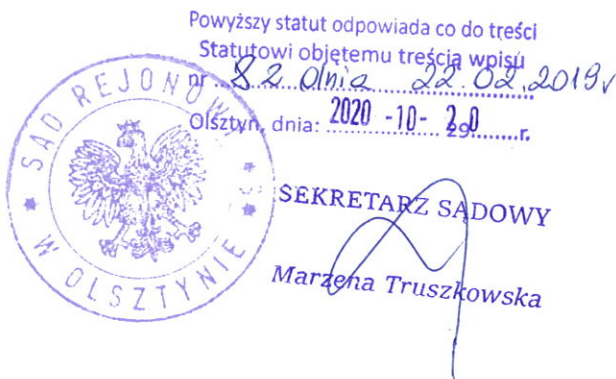 Powyższy statut odpowiada co do treści
Statutowi objętemu treścią wpisu
nr 82 dnia 22.02.2019r
Olsztyn, dnia: 2020 -10- 20 r.
SĄD REJONOWY
W OLSZTYNIE
SEKRETARZ SĄDOWY
Marzena Truszkowska